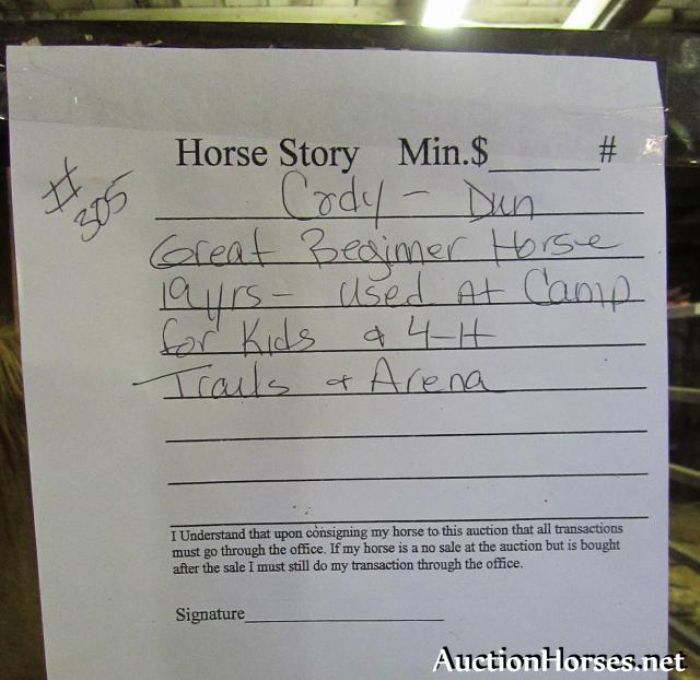 Horse Story Min.$______#
# 305
Cody - Dun
Great Beginner Horse
19 yrs - Used At Camp
for Kids & 4-H
Trails & Arena
I Understand that upon consigning my horse to this auction that all transactions
must go through the office. If my horse is a no sale at the auction but is bought
after the sale I must still do my transaction through the office.
Signature____________________
AuctionHorses.net